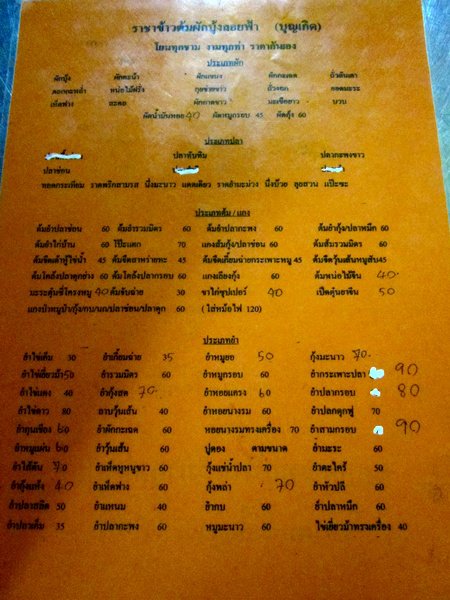 ราชาข้าวต้มผักบุ้งลอยฟ้า (บุญเกิด)
โยนทุกชาม งามทุกท่า ราคากันเอง
ประเภทผัก
ผักบุ้ง ผักคะน้า ผักแขนง ผักกระเฉด ถั่วลันเตา
ดอกกะหล่ำ หน่อไม้ฝรั่ง กุยช่ายขาว ถั่วงอก ยอดมะระ
เห็ดฟาง สะตอ ผักกาดขาว มะเขือยาว บวบ
ผัดน้ำมันหอย 40 ผัดหมูกรอบ 45 ผัดกุ้ง 60
ประเภทปลา
ปลาทับทิม ปลากะพงขาว
ปลาช่อน
ทอดกระเทียม ราดพริกสามรส นึ่งมะนาว แดดเดียว ราดยำมะม่วง นึ่งบ๊วย ลุยสวน แป๊ะซะ
ประเภทต้ม / แกง
ต้มยำปลาช่อน 60 ต้มยำรวมมิตร 60 ต้มยำปลากะพง 60 ต้มยำกุ้ง/ปลาหมึก 60
ต้มยำไก่บ้าน 60 โป๊ะแตก 70 แกงส้มกุ้ง/ปลาช่อน 60 ต้มส้มรวมมิตร 60
ต้มจืดเต้าหู้ไข่น้ำ 45 ต้มจืดสาหร่ายทะ 45 ต้มจืดเกี้ยมฉ่ายกระเพาะหมู 45 ต้มจืดวุ้นเส้นหมูสับ 45
ต้มโคล้งปลาดุกย่าง 60 ต้มโคล้งปลากรอบ 60 แกงเลียงกุ้ง 60 ต้มหน่อไม้จีน 40
มะระตุ๋นซี่โครงหมู 40 ต้มจับฉ่าย 30 ขาไก่ซุปเปอร์ 40 เป็ดตุ๋นยาจีน 50
แกงป่าหมูป่า/กุ้ง/กบ/นก/ปลาช่อน/ปลาดุก 60 (ใส่หม้อไฟ 120)
ประเภทยำ
ยำไข่เค็ม 30 ยำเกี้ยมฉ่าย 35 ยำหมูยอ 50 กุ้งมะนาว 70
ยำไข่เยี่ยวม้า 50 ยำรวมมิตร 60 ยำหมูกรอบ 60 ยำกระเพาะปลา 90
ยำไข่มดแดง 40 ยำกุ้งสด 70 ยำหอยแครง 60 ยำปลากรอบ 80
ยำไข่ดาว 80 ลาบวุ้นเส้น 40 ยำหอยนางรม 60 ยำปลาดุกฟู 70
ยำกุนเชียง 60 ยำผักกะเฉด 60 หอยนางรมทรงเครื่อง 70 ยำสามกรอบ 90
ยำหมูแผ่น 60 ยำวุ้นเส้น 60 ปูดอง ตามขนาด ยำมะระ 60
ยำไก่ต้ม 70 ยำเห็ดหูหนูขาว 60 กุ้งแช่น้ำปลา 70 ยำตะไคร้ 50
ยำกุ้งแห้ง 40 ยำเห็ดฟาง 60 กุ้งพล่า 70 ยำหัวปลี 60
ยำปลาสลิด 50 ยำแหนม 40 ยำกบ 60 ยำปลาหมึก 60
ยำปลาเค็ม 35 ยำปลากะพง 60 หมูมะนาว 60 ไข่เยี่ยวม้าทรงเครื่อง 40